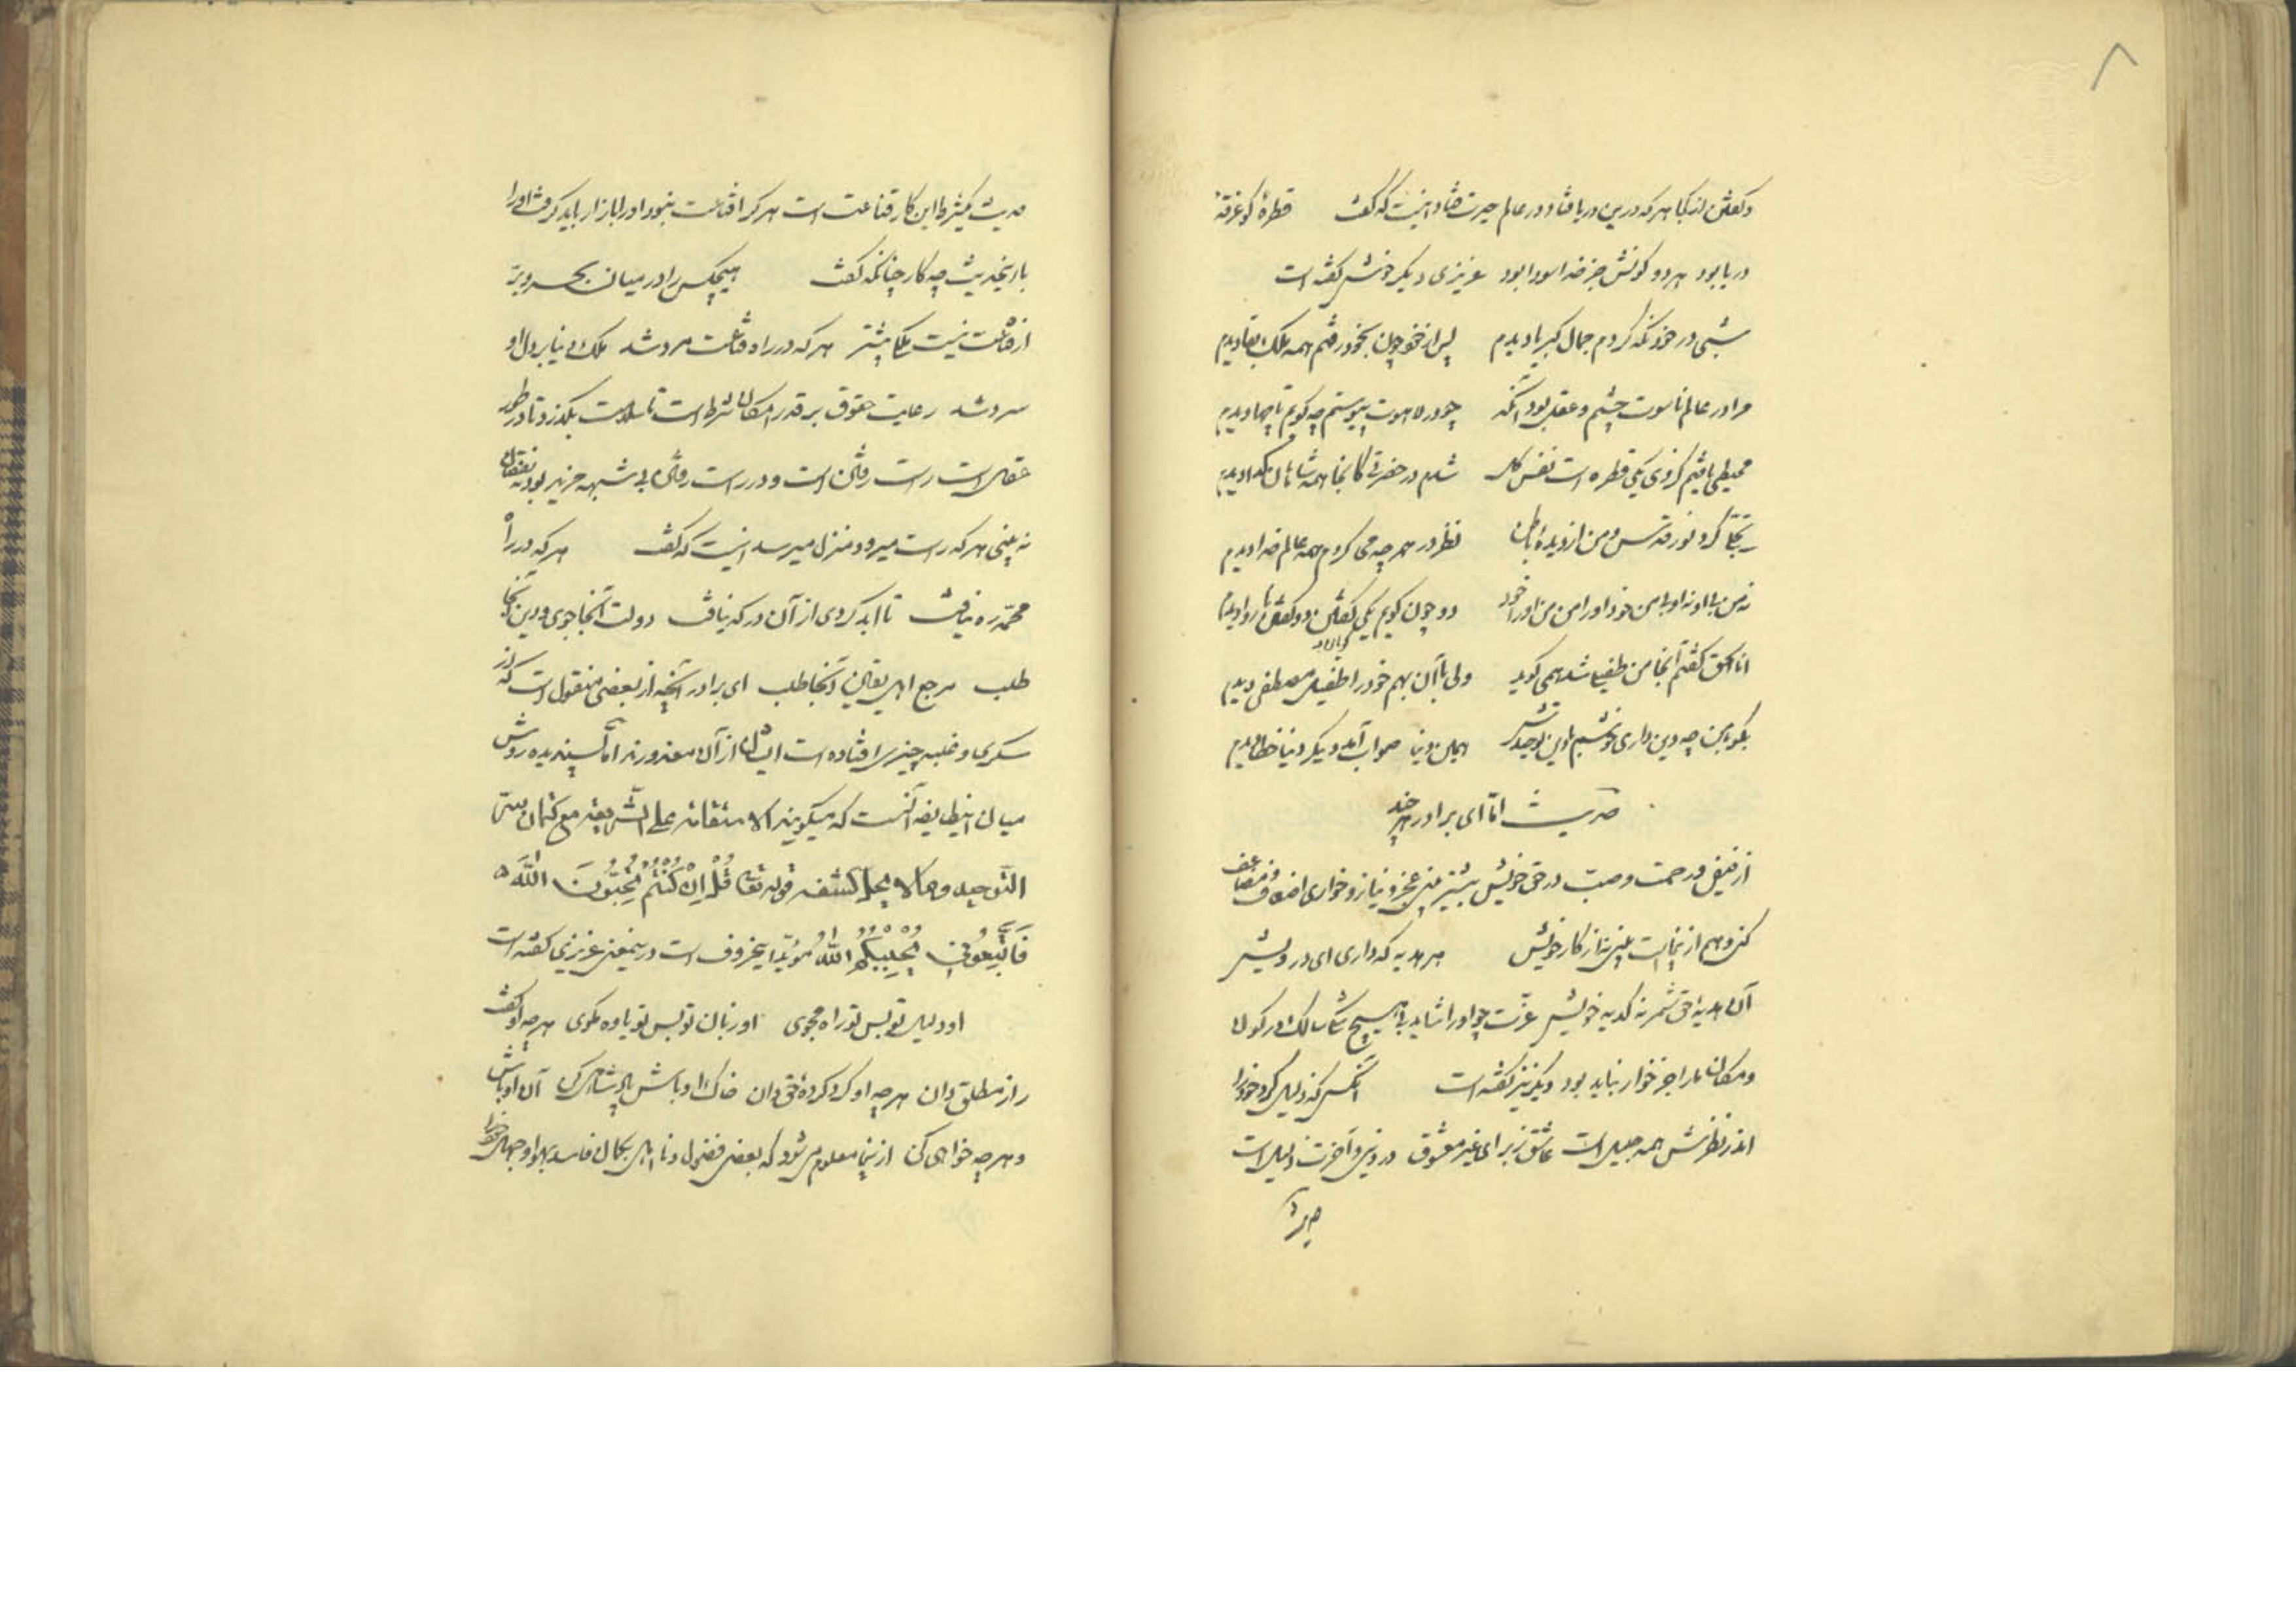 ۸
و گفتن از کجا هر که درین دریا فتاد و در عالم حیرت فتاد اینست که گفت قطرهٔ کو غرقهٔ
دریا بود هر دو کونش جز خدا سودا بود عزیزی دیگر خوش گفته است
شبی در خود نگه کردم جمال کبریا دیدم پس از خود چون بخود رفتم همه ملک بقا دیدم
مرا در عالم ناسوت چشم و عقل بود آنگه چو در لاهوت پیوستم چه گویم تا چها دیدم
محیطی یافتم کز وی یکی قطره است نفس کل شدم در حضرتی کانجا همه شاهان گدا دیدم
تجلی کرد نور قدس و من از دیدهٔ باطن نظر در هر چه می کردم همه عالم خدا دیدم
نه من بی او نه او بی من خود او را من من او را خود دو چون گویم یکی گفتن دو گفتن ناروا دیدم
انا الحق گفتم آنجا من طفیلی شد همی گوید ولی با آن بهم خود را طفیل مصطفی دیدم
بگو با من چه دین داری توئی همین دنیا صواب آمد دیگر دنیا خطا دیدم
حدیث اما ای برادر هر چند
از فیض و رحمت و محبت در حق خویش بیشتر بینی عجز و نیاز و خواری اضعاف و مضاعف
کن و هم از عنایت بینی نه از کار خویش هر هدیه که داری ای درویش
آن هدیه حق شمر نه کدیه خویش عزت چو او را شاید با هیچ سالک در کون
و مکان ما را جز خوار نباید بود دیگر نیز گفته است آنکس که ذلیل کرد خود را
اندر نظرش همه جلیل است عاشق ز برای غیر معشوق در دنیی و آخرت ذلیل است
حدیث
حدیث دیگر شرط این کار قناعت است هر کرا قناعت نبود او را بازار باید کرفت او را
با این حدیث چه کار چنانکه گفت هیچکس را در میان بحر و بر
از قناعت نیست ملکی بیشتر هر که در راه قناعت مرد شد ملک دنیا بر دل او
سرد شد رعایت حقوق بر قدر امکان شرط است تا سلامت بگذرد و تا در
حق است راست رفتن است و در راست رفتن بی شبهه مزید بود نه نقصان
نه بینی هر که راست میرود منزل میرسد اینست که گفت هر که در راه
محمد ره نیافت تا ابد گردی از آن درگه نیافت دولت اینجا جوی و دین اینجا
طلب مرجع اهل یقین اینجا طلب ای برادر آنچه از بعضی منقول است که از
سکری و غلبه چیزی افتاده است ایشان از آن معذورند اما پسندیده روش
میان این طایفه آنست که میگویند الاستقامة علی الشریعة مع کتمان سر
التوحید و مما لا یحل کشفه قوله تعالی قُلْ اِنْ کُنْتُمْ تُحِبُّونَ اللّٰهَ
فَاتَّبِعُونِی یُحْبِبْکُمُ اللّٰهُ مؤید این حروف است درین معنی عزیزی گفته است
او دلیل تو بس تو راه مجوی او زبان تو بس تو یاوه مگوی هر چه او گفت
راز مطلق دان هر چه او کرد کردهٔ حق دان خاک او باش پادشاهی کن آن او باش
و هر چه خواهی کن از اینجا معلوم می شود که بعضی فضول و نااهل بگمان فاسد و هوا و جهل خود را